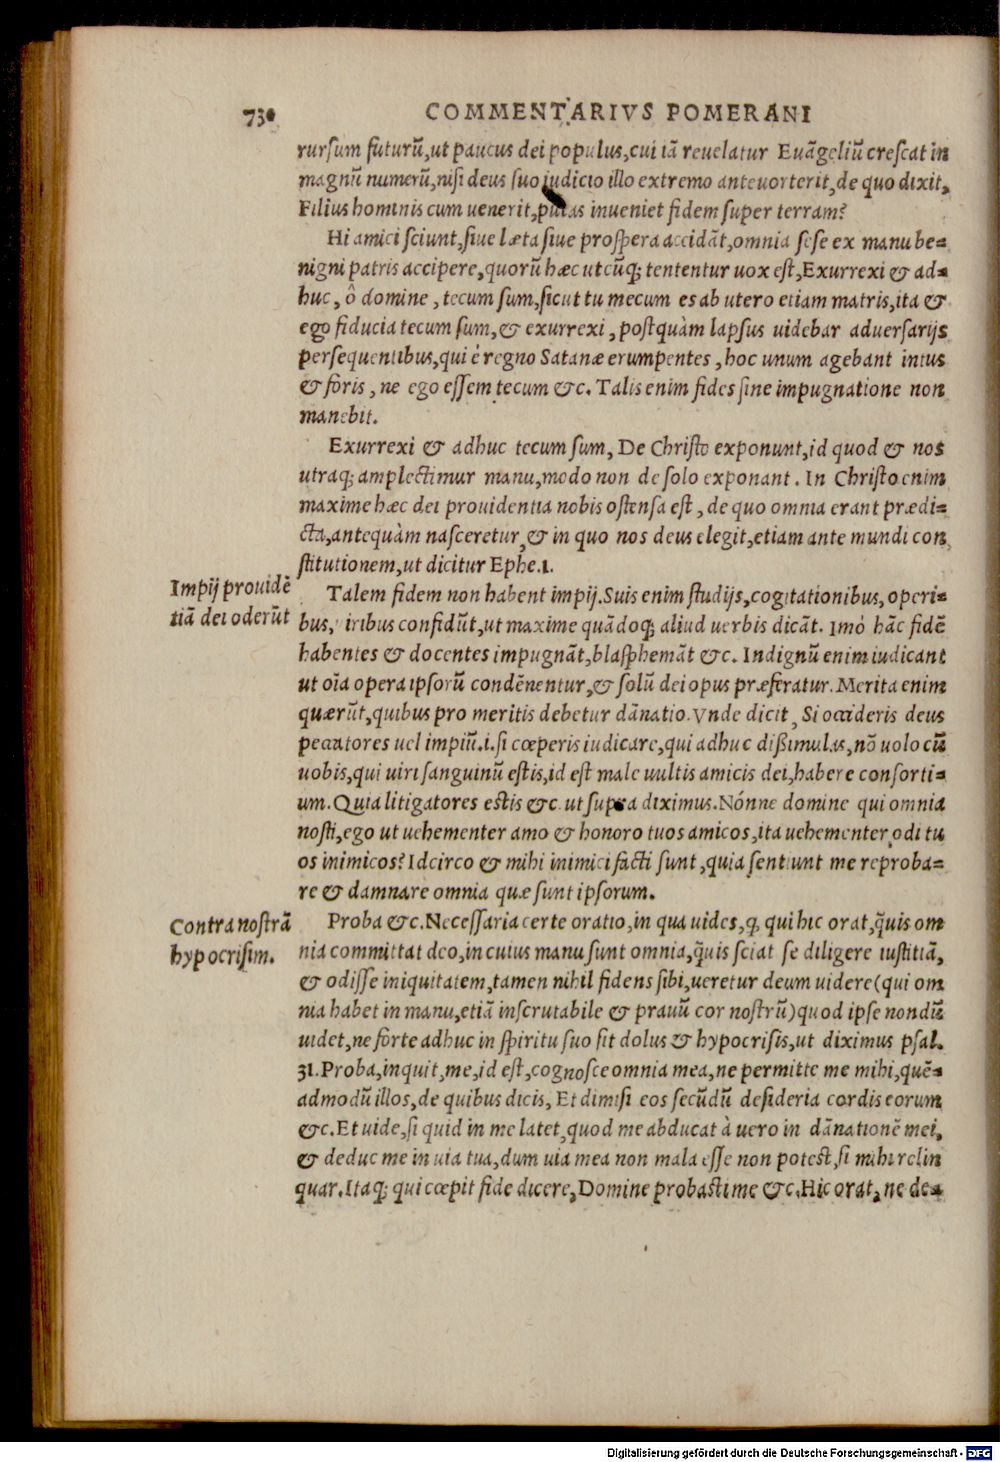 730 COMMENTARIVS POMERANI
rursum futurũ,ut paucus dei populus,cui iã reuelatur Euãgeliũ crescat in
magnũ numerũ,nisi deus suo iudicio illo extremo anteuorterit,de quo dixit,
Filius hominis cum uenerit,putas inueniet fidem super terram?
Hi amici sciunt,siue læta siue prospera accidãt,omnia sese ex manu be=
nigni patris accipere,quorũ hæc utcũq; tententur uox est,Exurrexi & ad=
huc, ô domine, tecum sum,sicut tu mecum es ab utero etiam matris,ita &
ego fiducia tecum sum,& exurrexi, postquàm lapsus uidebar aduersarijs
persequentibus,qui è regno Satanæ erumpentes, hoc unum agebant intus
& foris, ne ego essem tecum &c. Talis enim fides sine impugnatione non
manebit.
Exurrexi & adhuc tecum sum, De Christo exponunt,id quod & nos
utraq; amplectimur manu,modo non de solo exponant. In Christo enim
maxime hæc dei prouidentia nobis ostensa est, de quo omnia erant prædi=
cta,antequàm nasceretur,& in quo nos deus elegit,etiam ante mundi con
stitutionem,ut dicitur Ephe.1.
Impij prouidẽ
tiã dei oderũt
Talem fidem non habent impij.Suis enim studijs,cogitationibus,operi=
bus, iribus confidũt,ut maxime quãdoq; aliud uerbis dicãt. Imò hãc fidẽ
habentes & docentes impugnãt,blasphemãt &c. Indignũ enim iudicant
ut oĩa opera ipsorũ condẽnentur,& solũ dei opus præferatur.Merita enim
quærũt,quibus pro meritis debetur dãnatio.Vnde dicit, Si occideris deus
peccatores uel impiũ.i.si cœperis iudicare,qui adhuc dißimulas,nõ uolo cũ
uobis,qui uiri sanguinũ estis,id est male uultis amicis dei,habere consorti=
um.Quia litigatores estis &c. ut supra diximus.Nónne domine qui omnia
nosti,ego ut uehementer amo & honoro tuos amicos,ita uehementer odi tu
os inimicos?Idcirco & mihi inimici facti sunt,quia sentiunt me reproba=
re & damnare omnia quæ sunt ipsorum.
Contra nostrã
hypocrisim.
Proba &c.Necessaria certe oratio,in qua uides,q̃ qui hic orat,q̃uis om
nia committat deo,in cuius manu sunt omnia,q̃uis sciat se diligere iustitiã,
& odisse iniquitatem,tamen nihil fidens sibi,ueretur deum uidere(qui om
nia habet in manu,etiã inscrutabile & prauũ cor nostrũ)quod ipse nondũ
uidet,ne forte adhuc in spiritu suo sit dolus & hypocrisis,ut diximus psal.
31.Proba,inquit,me,id est,cognosce omnia mea,ne permitte me mihi,quẽ=
admodũ illos,de quibus dicis, Et dimisi eos secũdũ desideria cordis eorum
&c.Et uide,si quid in me latet,quod me abducat à uero in dãnationẽ mei,
& deduc me in uia tua,dum uia mea non mala esse non potest,si mihi relin
quar.Itaq; qui cœpit fide dicere,Domine probasti me &c.Hic orat,ne de=
Digitalisierung gefördert durch die Deutsche Forschungsgemeinschaft - DFG